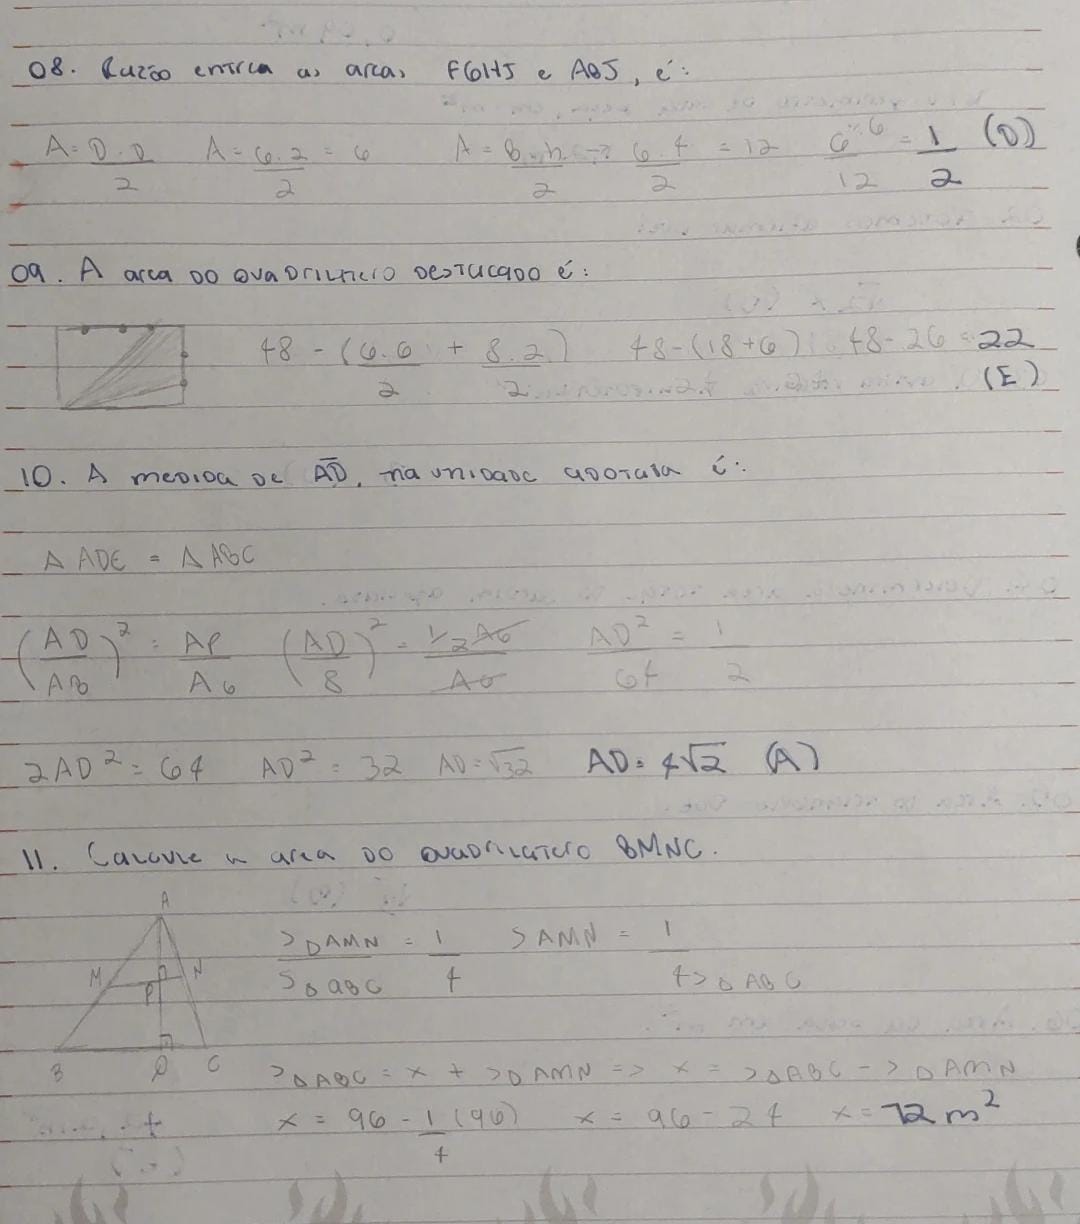 08. Razão entrea as areas FGHJ e ABJ, é:
A = D.D/2 A = 6.2/2 = 6 A = B.h/2 → 6.4/2 = 12 6÷6/12 = 1/2 (D)
09. A area do quadrilatero destacado é:
48 - (6.6/2 + 8.2/2) 48-(18+6) 48-26 = 22
(E)
10. A medida de AD, na unidade adotada é:
Δ ADE = Δ ABC
(AD/AB)² = AP/AG (AD/8)² = 1/2AG/AG AD²/64 = 1/2
2AD² = 64 AD² = 32 AD = √32 AD = 4√2 (A)
11. Calcule a area do quadrilatero BMNC.
A
SΔAMN/SΔABC = 1/4 SAMN = 1/4SΔABC
M N
P
B Q C
SΔABC = x + SΔAMN => x = SΔABC - SΔAMN
x = 96 - 1/4(96) x = 96 - 24 x = 72 m²